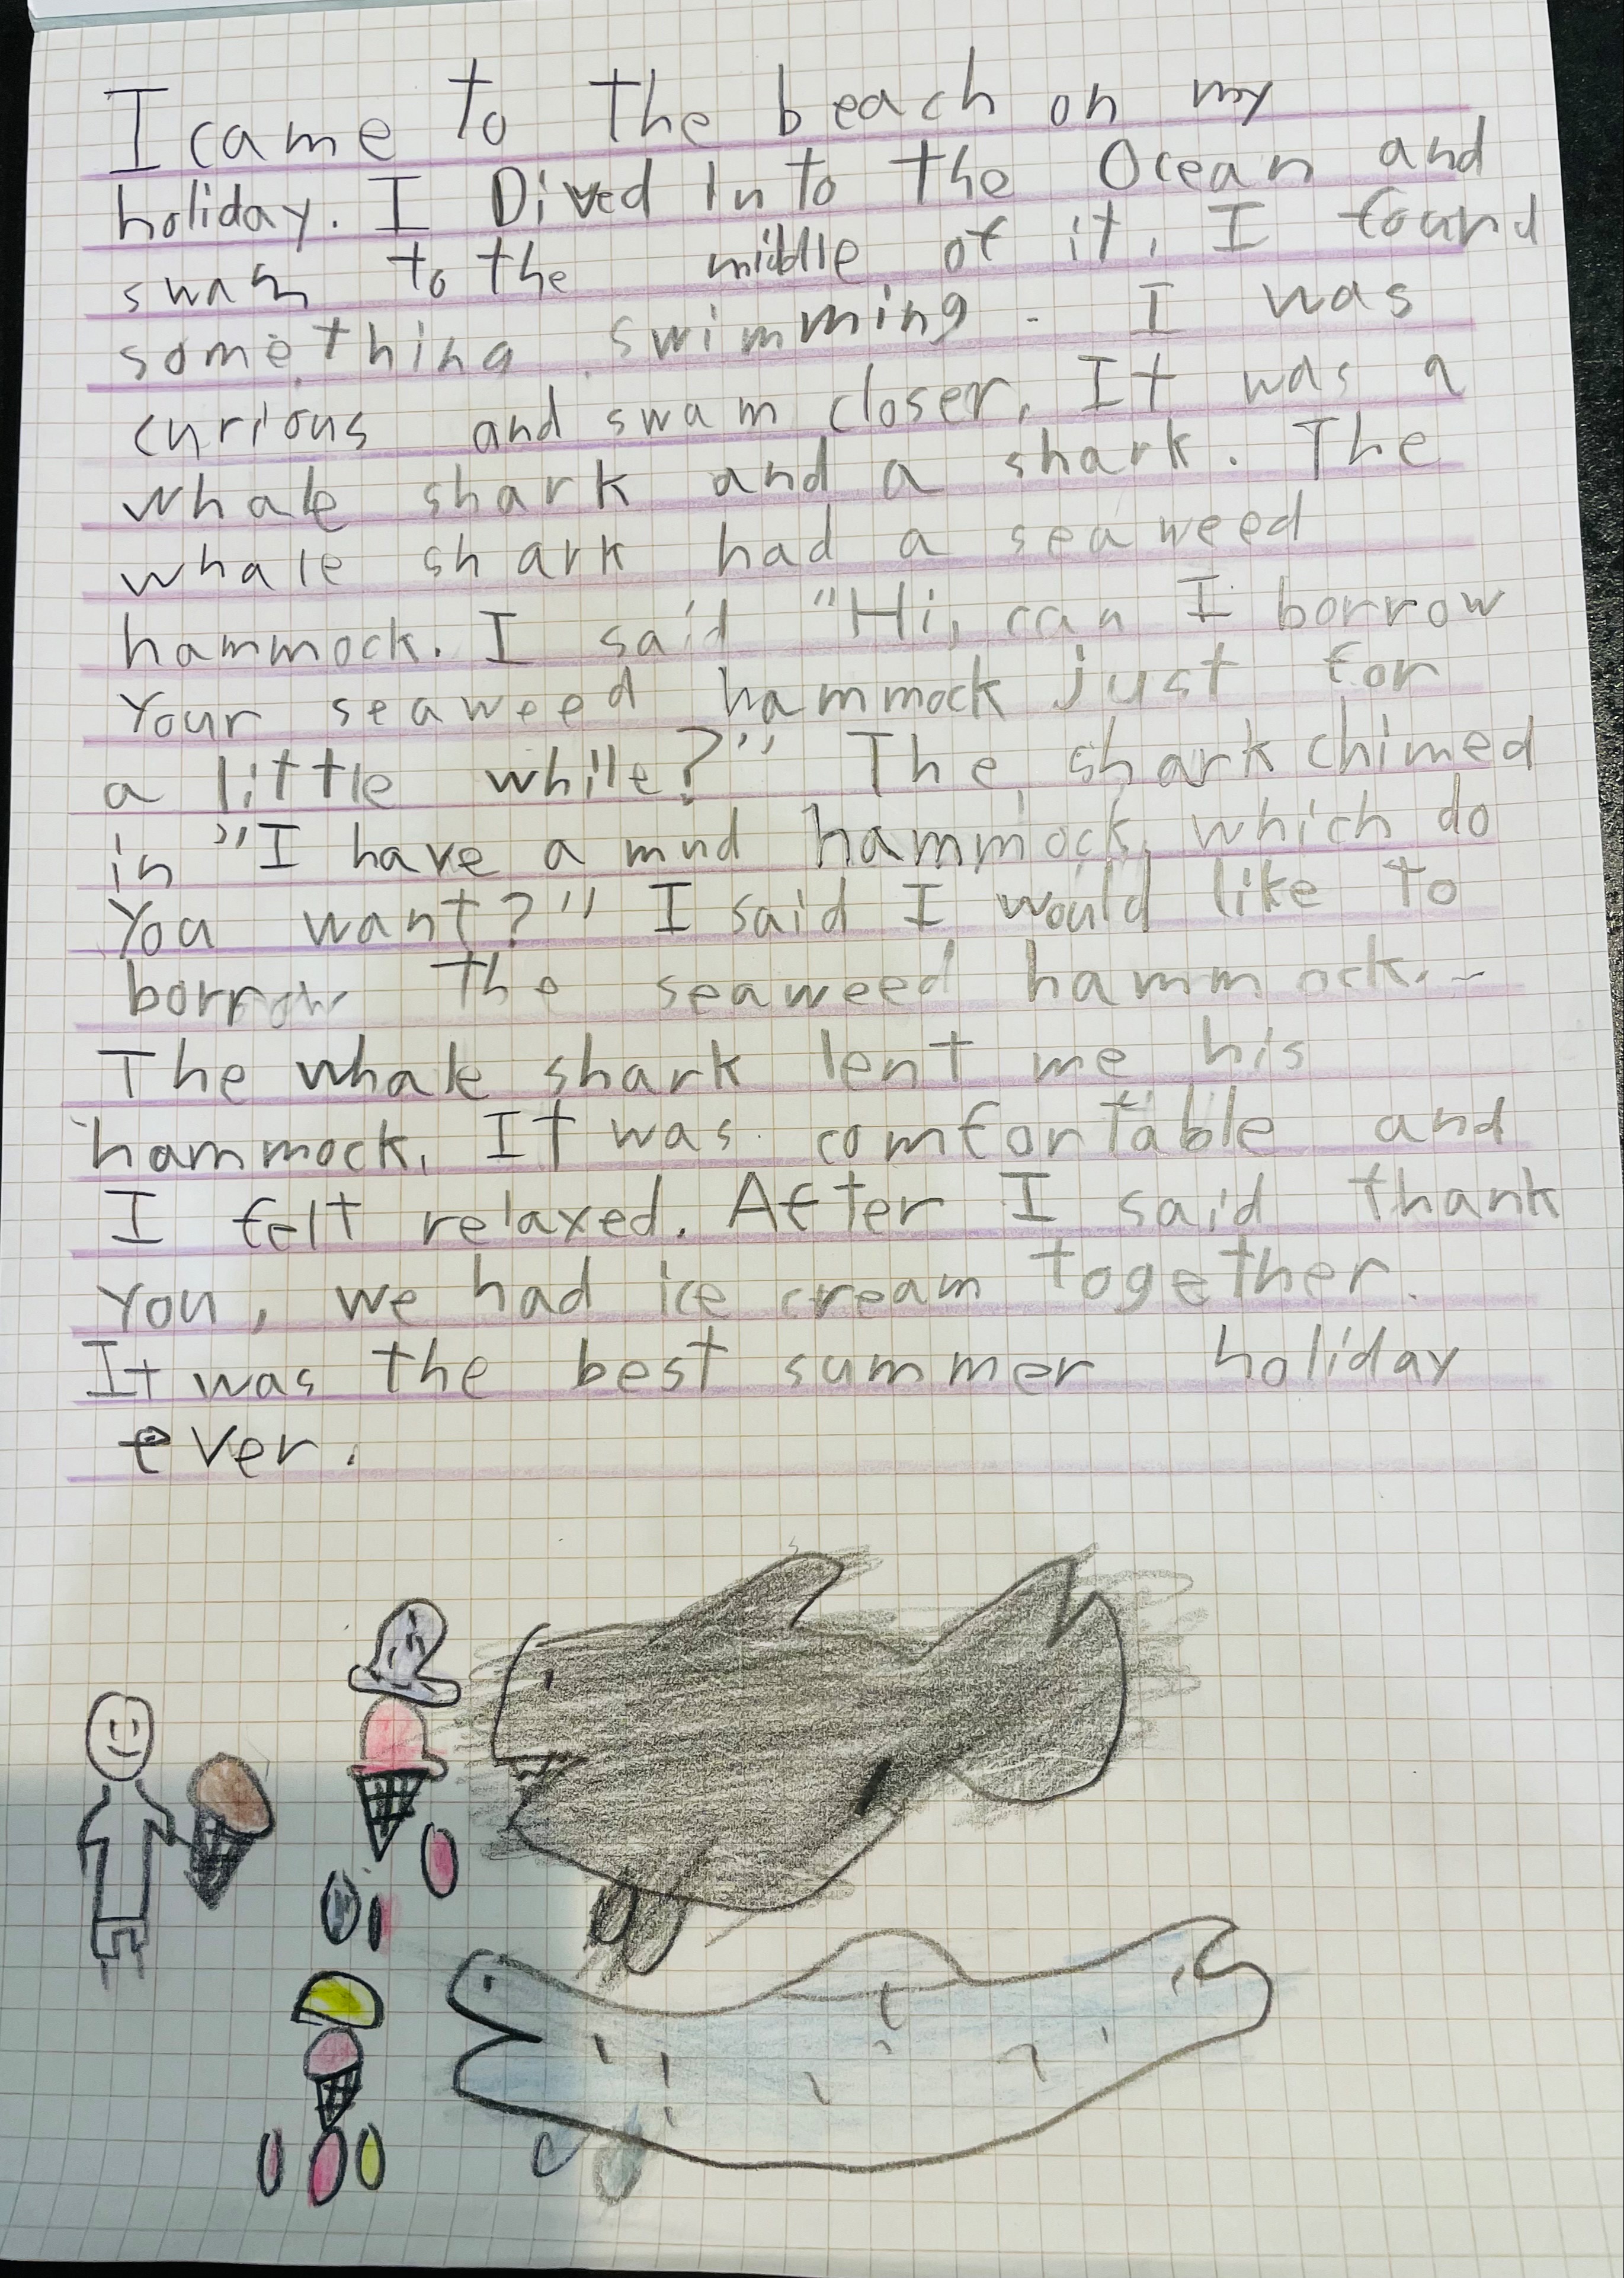 I came to the beach on my
holiday. I Dived Into the Ocean and
swam to the middle of it, I found
something swimming. I was
curious and swam closer. It was a
whale shark and a shark. The
whale shark had a seaweed
hammock. I said "Hi, can I borrow
your seaweed hammock just for
a little while?" The shark chimed
in "I have a mud hammock, which do
you want?" I said I would like to
borrow the seaweed hammock.
The whale shark lent me his
hammock. It was comfortable and
I felt relaxed. After I said thank
you, we had ice cream together.
It was the best summer holiday
ever.